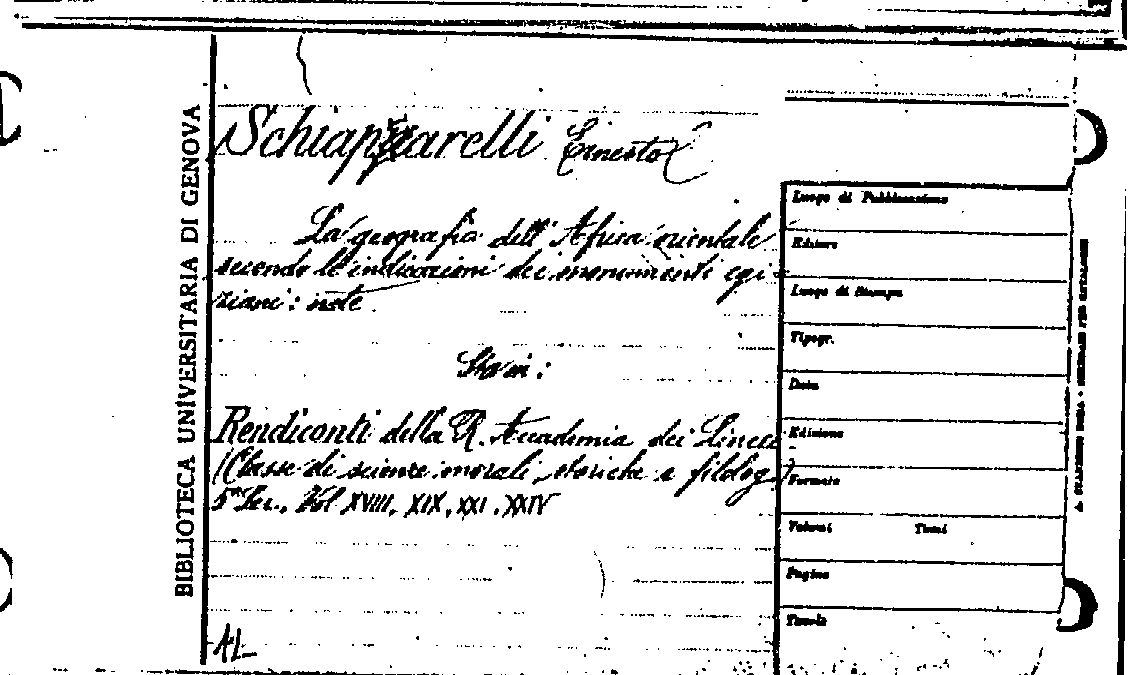 BIBLIOTECA UNIVERSITARIA DI GENOVA
Schiaparelli Ernesto
La geografia dell'Africa orientale
secondo le indicazioni dei monumenti egi=
ziani: note
Sta in:
Rendiconti della R. Accademia dei Lincei
(Classe di scienze morali, storiche e filolog.)
5ª Ser., Vol XVIII, XIX, XXI, XXIV
AL
Luogo di Pubblicazione
Editore
Luogo di Stampa
Tipogr.
Data
Edizione
Formato
Volumi Tomi
Pagine
Tavole